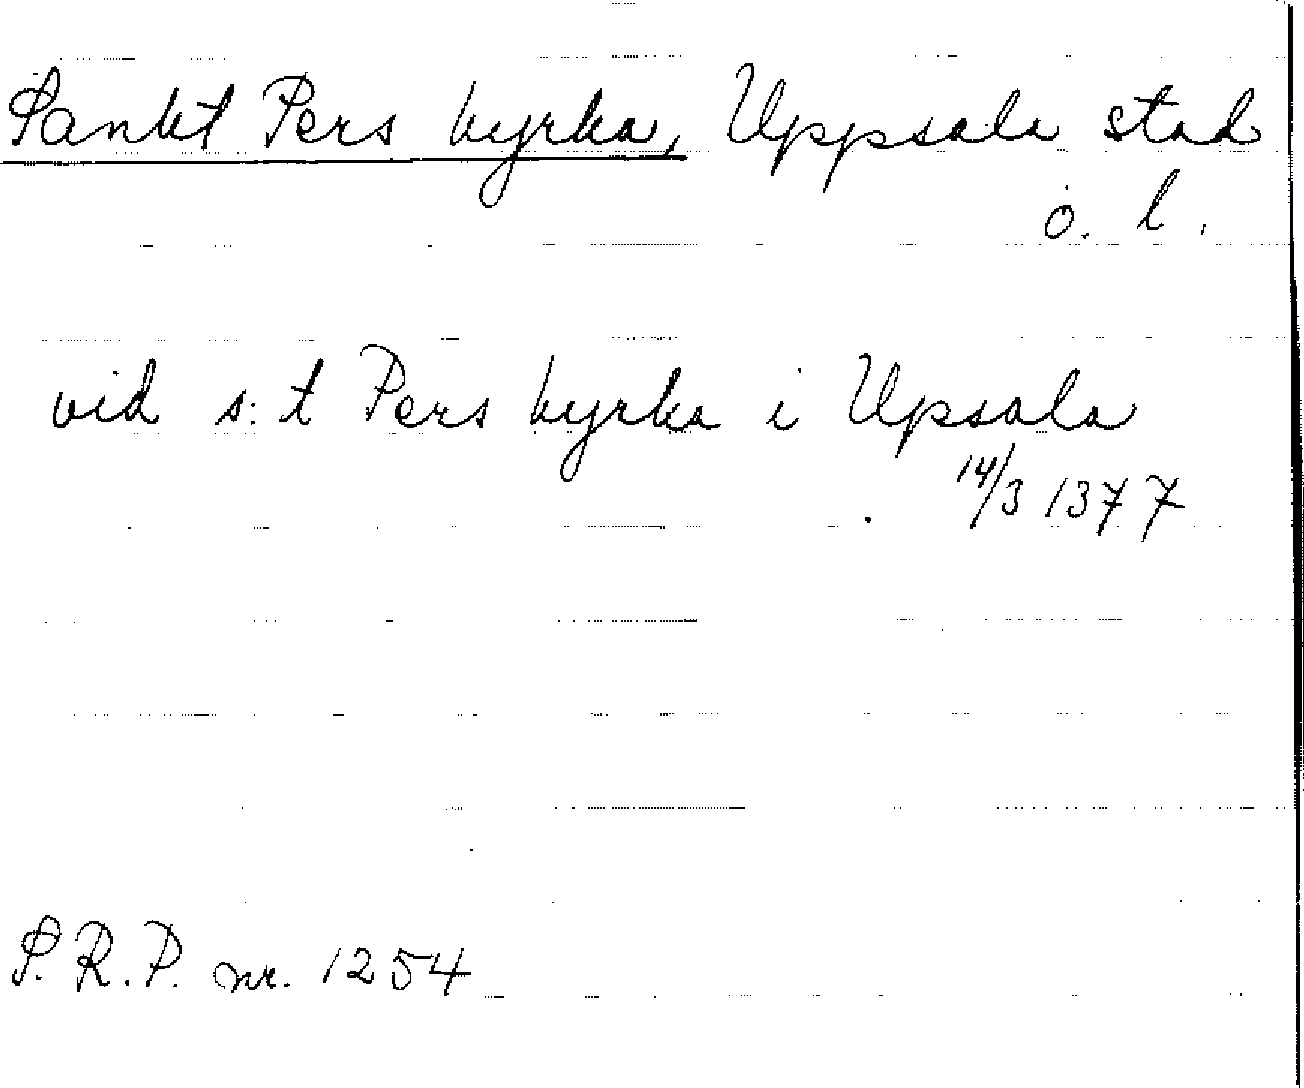 Sankt Pers kyrka, Uppsala stad
ö. l.
vid s:t Pers kyrka i Upsala
14/3 1377
S.R.P. nr. 1254